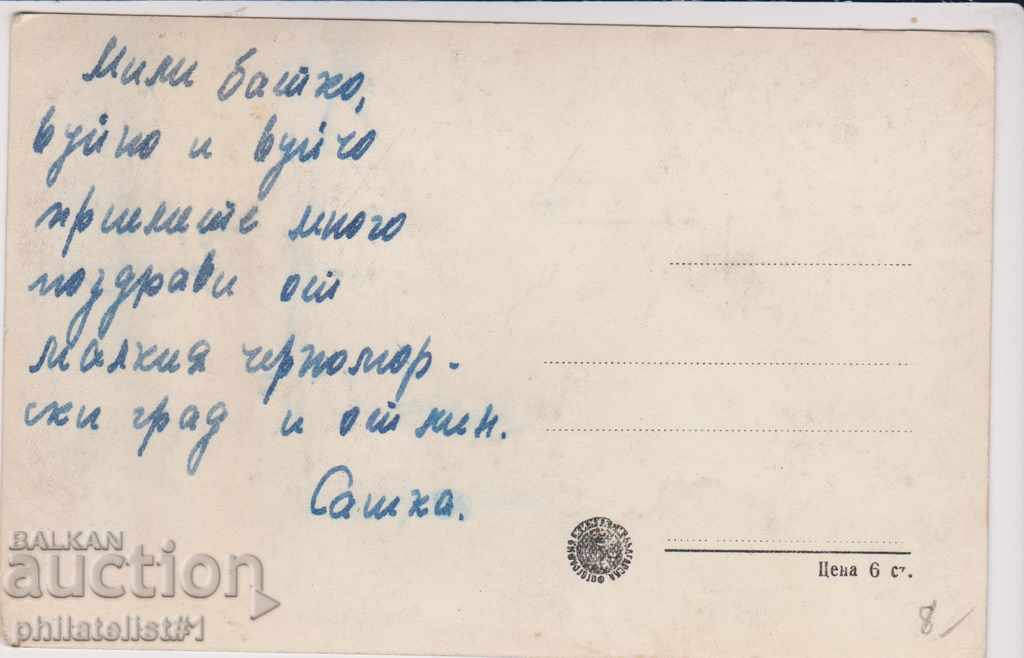 Мили батко,
вуйно и вуйчо
приемете много
поздрави от
малкия черномор-
ски град и от мин.
Сашка.
Цена 6 ст.
8/
BALKAN
auction
philatelist#1